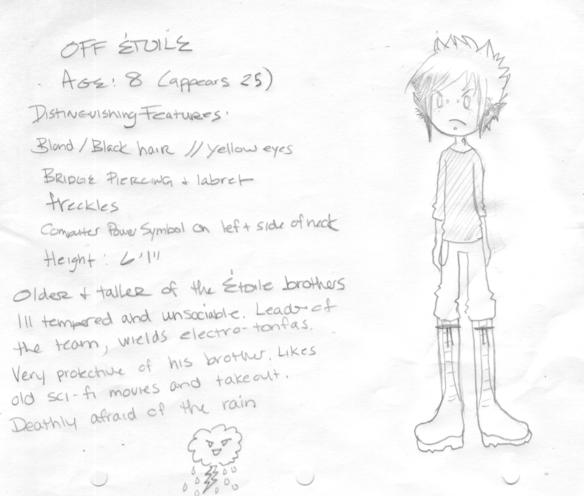 OFF ÉTOILE
AGE: 8 (appears 25)
Distinguishing Features:
Blond/Black hair // yellow eyes
BRIDGE PIERCING + labret
freckles
Computer Power Symbol on left + side of neck
Height: 6'11"
Older + taller of the Étoile brothers
Ill tempered and unsociable. Leader of
the team, wields electro-tonfas.
Very protective of his brother. Likes
old sci-fi movies and takeout.
Deathly afraid of the rain